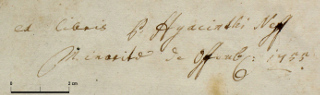 ex libris P Hyacinthi Neff
Minorite de Offenb: 1755
0 2 cm